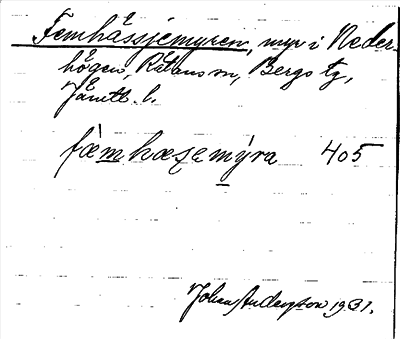 Femhåssjemyren, myr i Neder-
högen, Råtans sn, Bergs tg,
Jämtl. l.
fæ̀mhæʂemýra 405
Johan Anderson 1931.